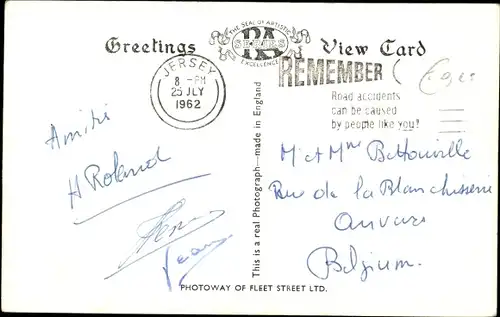 Greetings
THE SEAL OF ARTISTIC
RA
EXCELLENCE
View Card
JERSEY
8 - PM
25 JLY
1962
REMEMBER
Road accidents
can be caused
by people like you!
Amitié
H Roland
Jean
This is a real Photograph—made in England
M et Mme
Rue de la Blanchisserie
Anvers
Belgium.
PHOTOWAY OF FLEET STREET LTD.